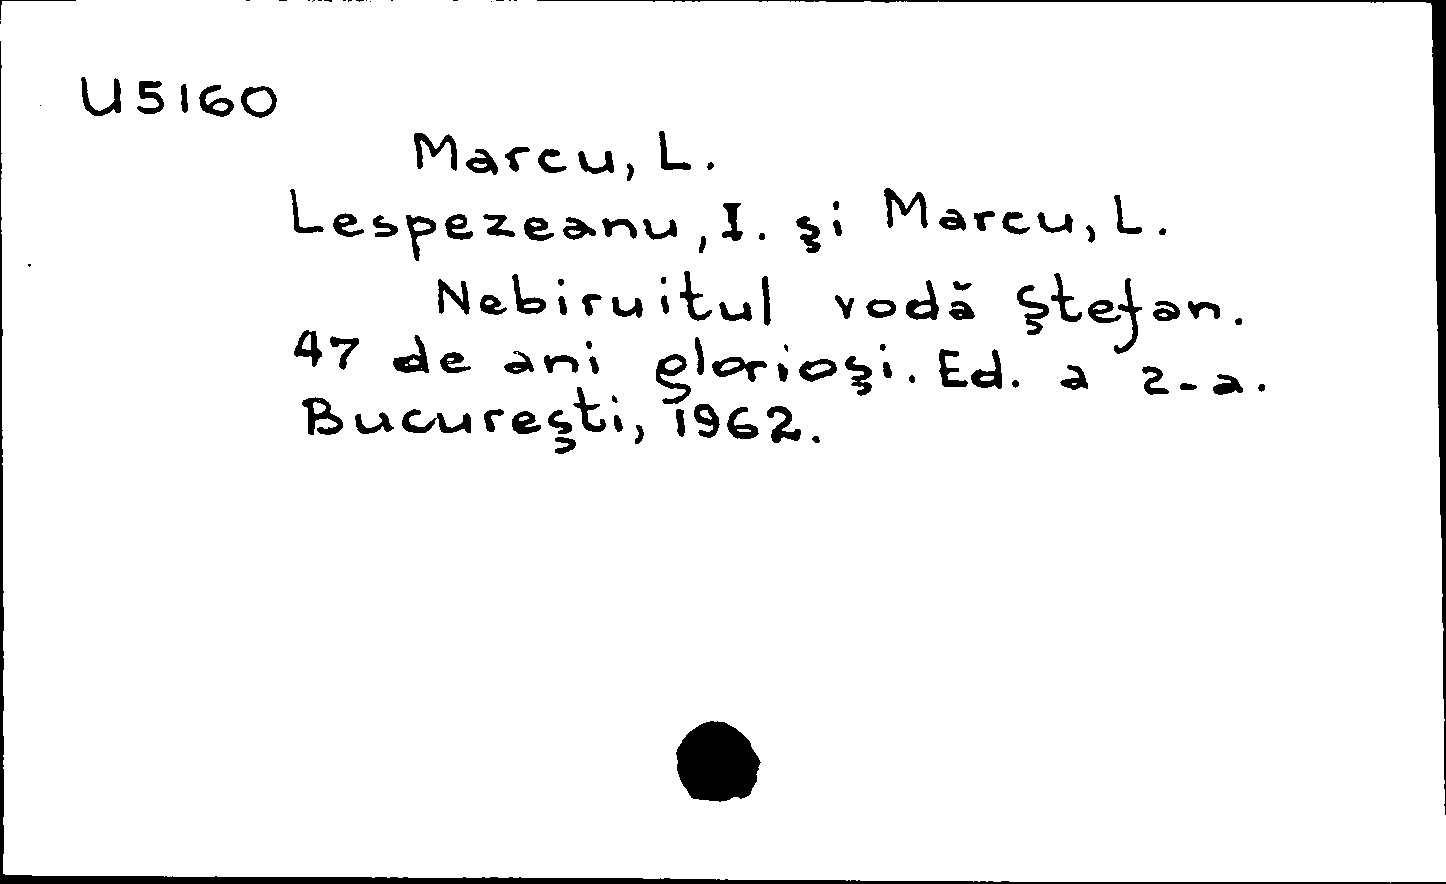 U5160
Marcu, L.
Lespezeanu, I. şi Marcu, L.
Nebiruitul vodă Ştefan.
47 de ani glorioşi. Ed. a 2-a.
Bucureşti, 1962.